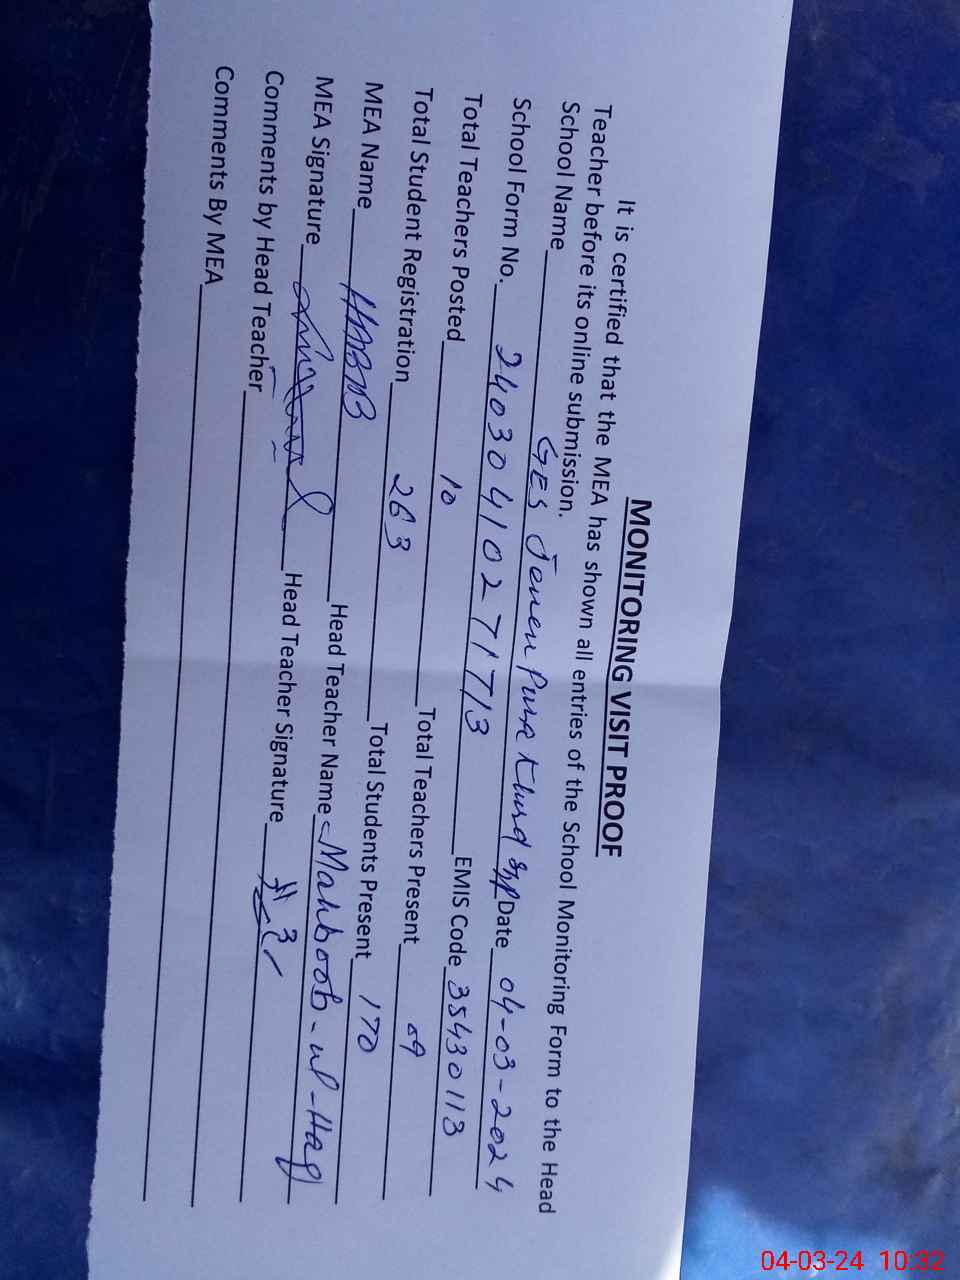 MONITORING VISIT PROOF
It is certified that the MEA has shown all entries of the School Monitoring Form to the Head
Teacher before its online submission.
School Name GES Khurd Date 04-03-2024
School Form No. 24030410271713 EMIS Code 35430113
Total Teachers Posted 10 Total Teachers Present 09
Total Student Registration 263 Total Students Present 170
MEA Name HABIB Head Teacher Name Mahboob-ul-Haq
MEA Signature Head Teacher Signature
Comments by Head Teacher
Comments By MEA
04-03-24 10:32